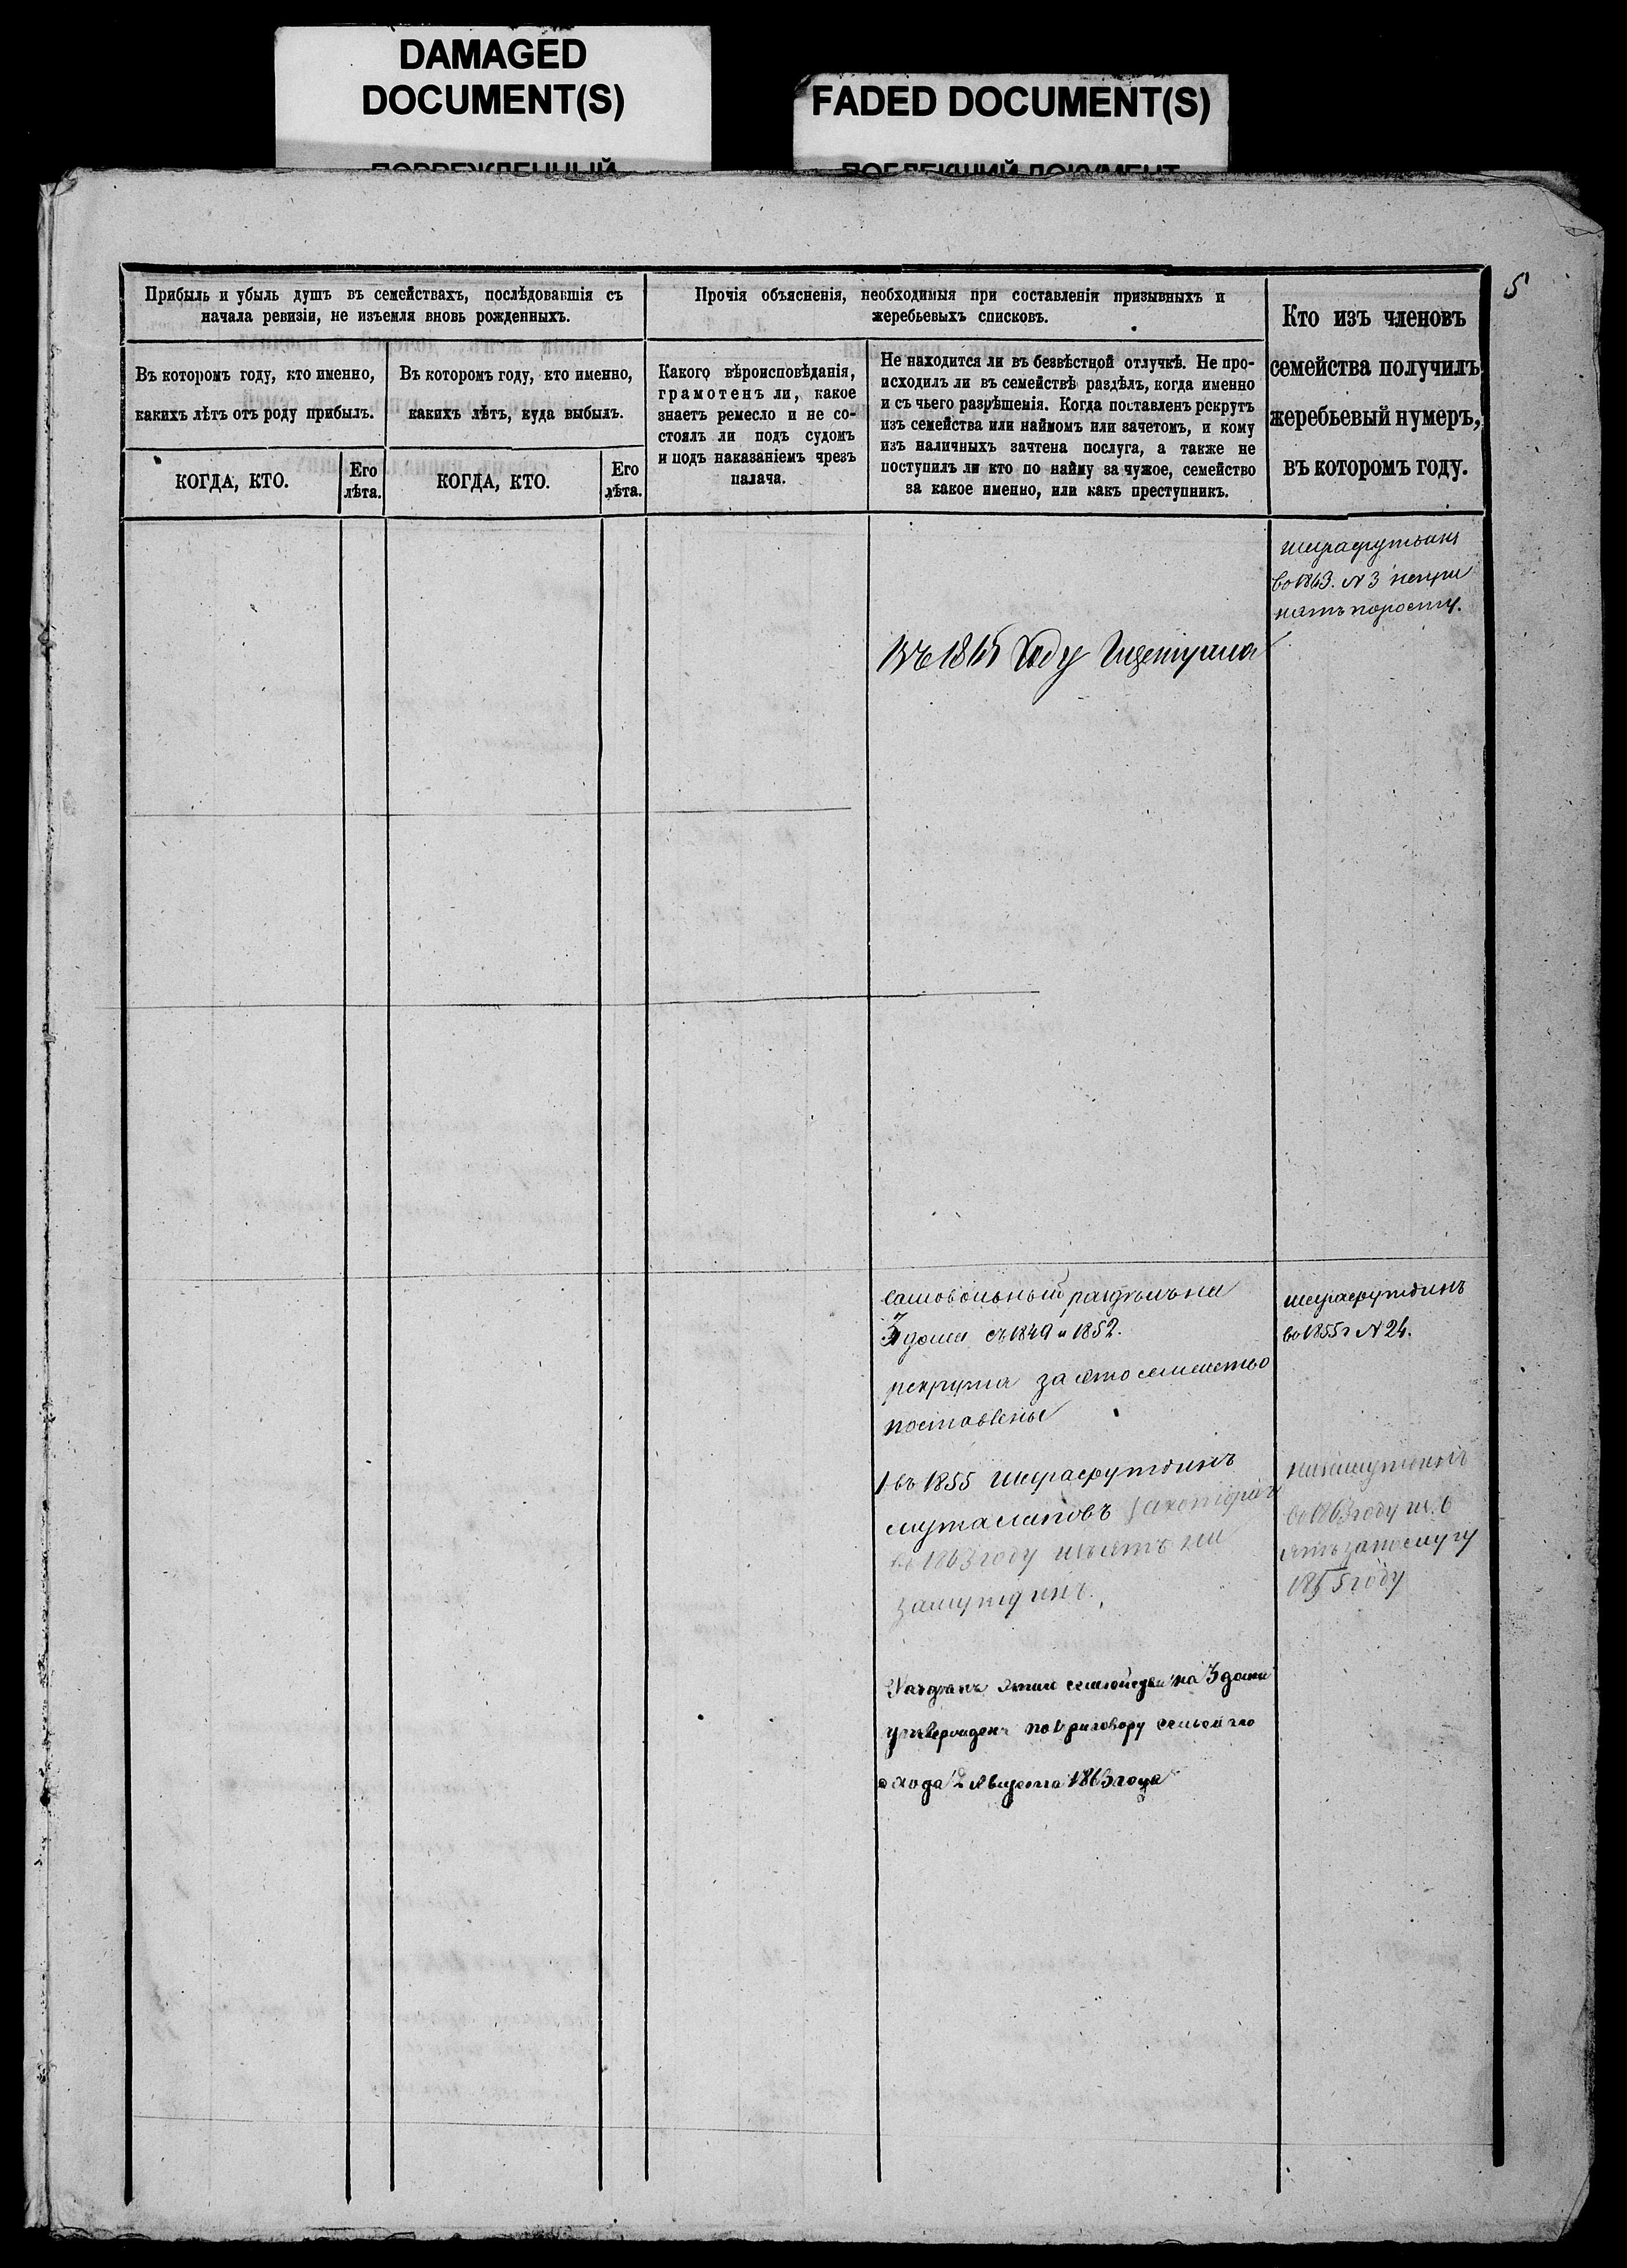 DAMAGED
DOCUMENT(S)
FADED DOCUMENT(S)
5
Прибыль и убыль душъ въ семействахъ, послѣдовавшія съ
начала ревизіи, не изъемля вновь рожденныхъ.
Въ которомъ году, кто именно,
какихъ лѣтъ отъ роду прибылъ.
КОГДА, КТО.
Его
лѣта.
Въ которомъ году, кто именно,
какихъ лѣтъ, куда выбылъ.
КОГДА, КТО.
Его
лѣта.
Прочія объясненія, необходимыя при составленіи призывныхъ и
жеребьевыхъ списковъ.
Какого вѣроисповѣданія,
грамотенъ ли, какое
знаетъ ремесло и не со-
стоялъ ли подъ судомъ
и подъ наказаніемъ чрезъ
палача.
Не находится ли въ безвѣстной отлучкѣ. Не про-
исходилъ ли въ семействѣ раздѣлъ, когда именно
и съ чьего разрѣшенія. Когда поставленъ рекрутъ
изъ семейства или наймомъ или зачетомъ, и кому
изъ наличныхъ зачтена послуга, а также не
поступилъ ли кто по найму за чужое, семейство
за какое именно, или какъ преступникъ.
Кто изъ членовъ
семейства получилъ
жеребьевый нумеръ,
въ которомъ году.
во 1863. N 3 непри
нятъ поросту.
Въ году
самовольный раздѣлъ на
3 дома съ 1849 и 1852.
рекрута за это семейство
поставлены
1 въ 1855 Шерафутдинъ
муталаповъ
въ 1863 году
Шерафутдинъ
во 1855 г N 24.
во 1863 году
ятъ за послугу
1855 году
на 3 дома
утвержденъ по приговору
схода 2 Августа 1863 года